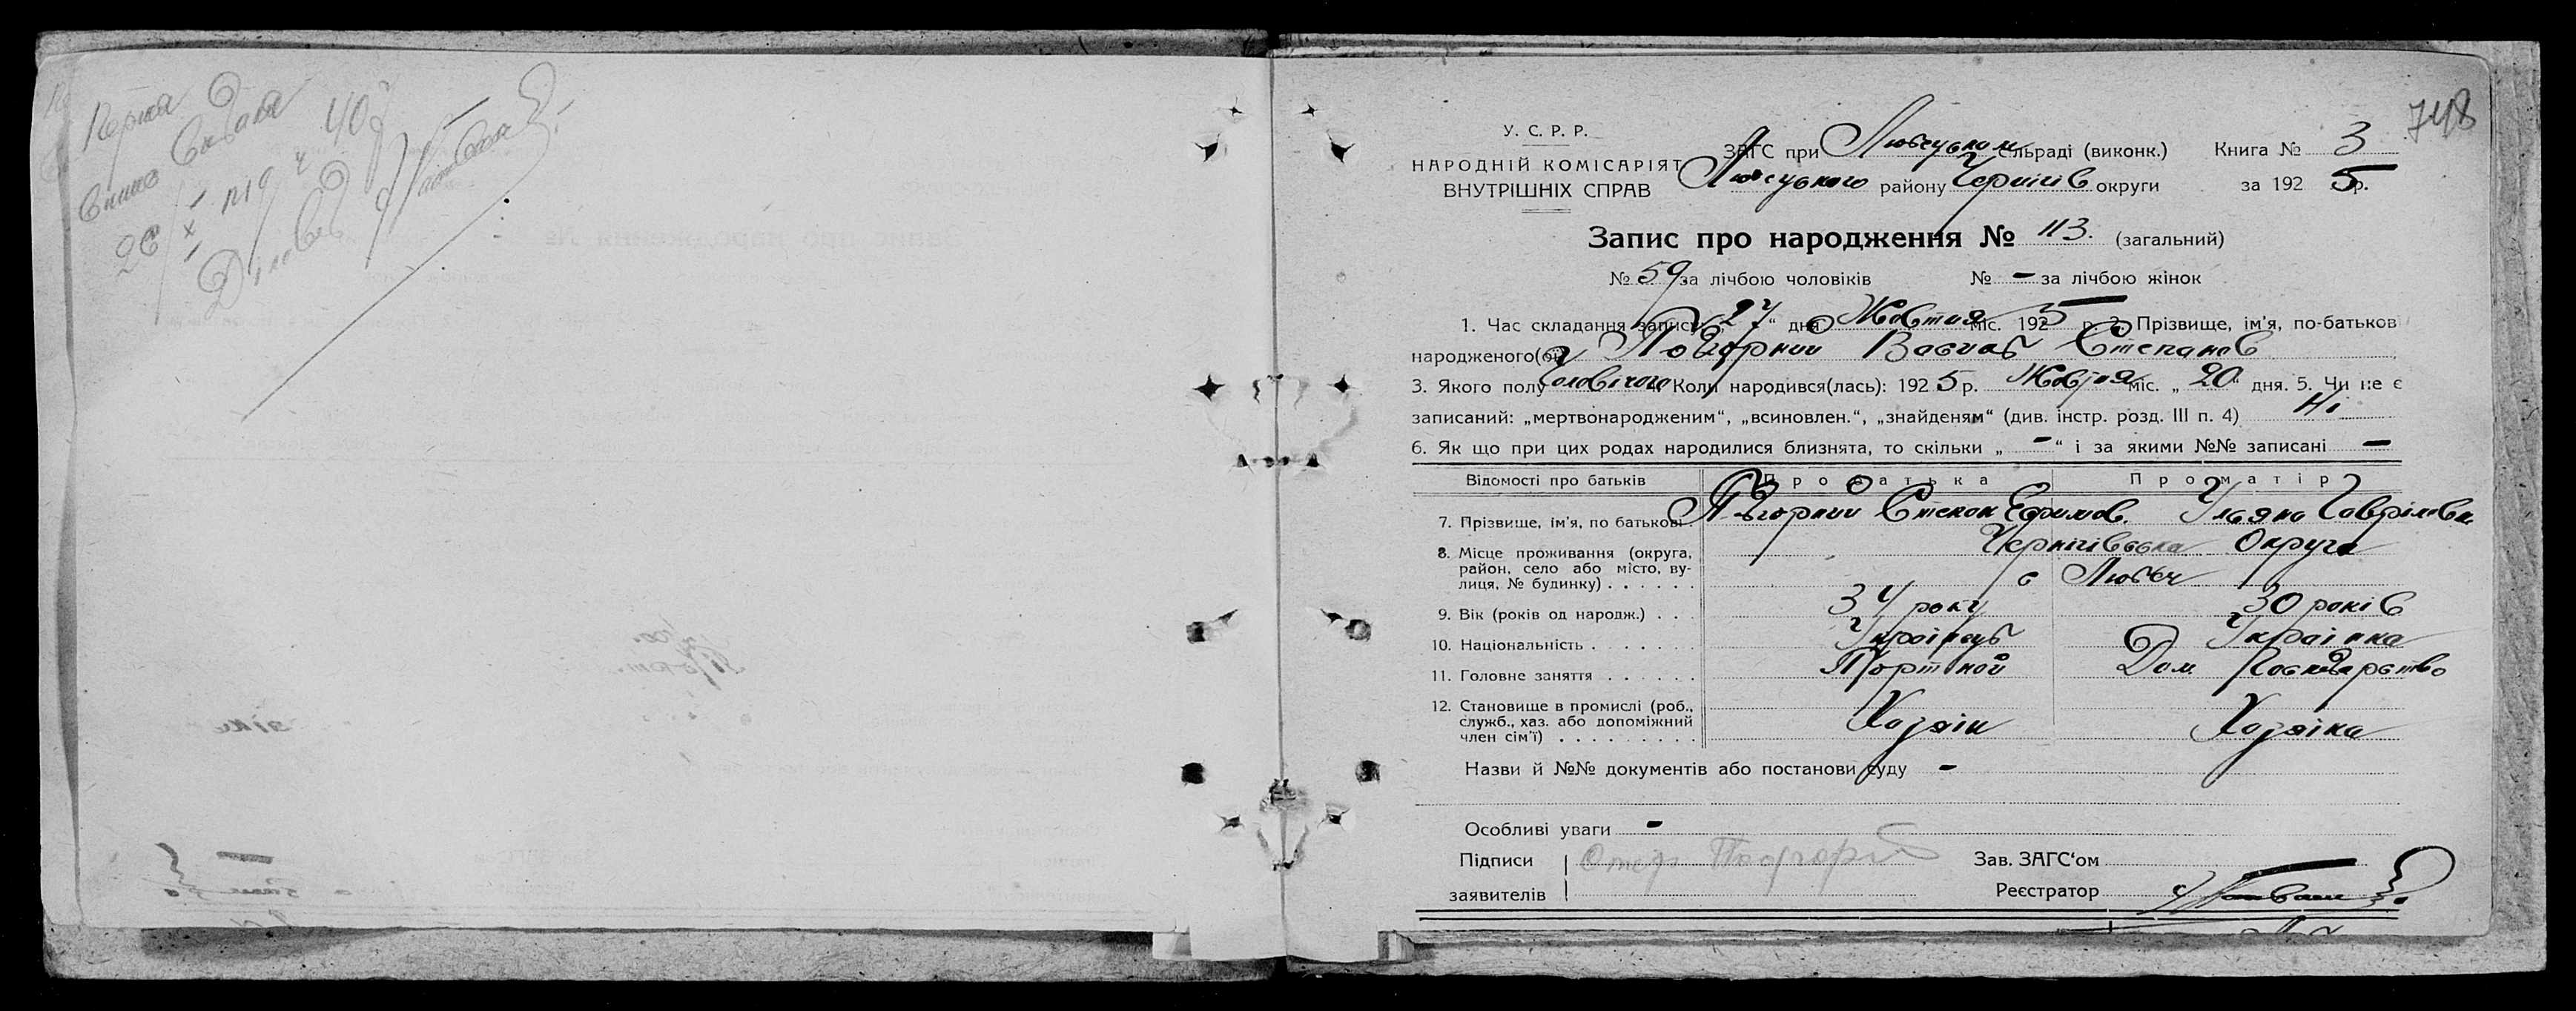 Перша
Видана
748
У. С. Р. Р.
НАРОДНІЙ КОМІСАРІЯТ
ВНУТРІШНІХ СПРАВ
ЗАГС при Любецьком сільраді (виконк.) Книга № 3
Любецького району Чернігів округи за 1925 р.
Запис про народження № 113. (загальний)
№ 59 за лічбою чоловіків № - за лічбою жінок
1. Час складання запису „27“ дня Жовтня міс. 1925 р. 2. Прізвище, ім'я, по-батьков
народженого(ої) Подгорний Василь Степанов
3. Якого полу Чоловічого Коли народився(лась): 1925 р. Жовтня міс. „20“ дня. 5. Чи не є
записаний: „мертвонародженим“, „всиновлен.“, „знайденям“ (див. інстр. розд. III п. 4) Ні
6. Як що при цих родах народилися близнята, то скільки „-“ і за якими №№ записані -
Відомості про батьків Про батька Про матір
7. Прізвище, ім'я, по батькові Подгорний Степан Ефимов. Уляна Гавріловна
8. Місце проживання (округа, Чернігівська Округа
район, село або місто, ву-
лиця, № будинку) . . . . . с Любеч
9. Вік (років од народж.) . . . 34 року 30 років
10. Національність . . . . . . Українець Українка
11. Головне заняття . . . . . . Портной Дом. Господарство
12. Становище в промислі (роб.,
служб., хаз. або допоміжний Хазяін Хазяіка
член сім'ї) . . . . . . . . .
Назви й №№ документів або постанови суду -
Особливі уваги -
Підписи Отец Подгорний Зав. ЗАГС'ом
заявителів Реєстратор